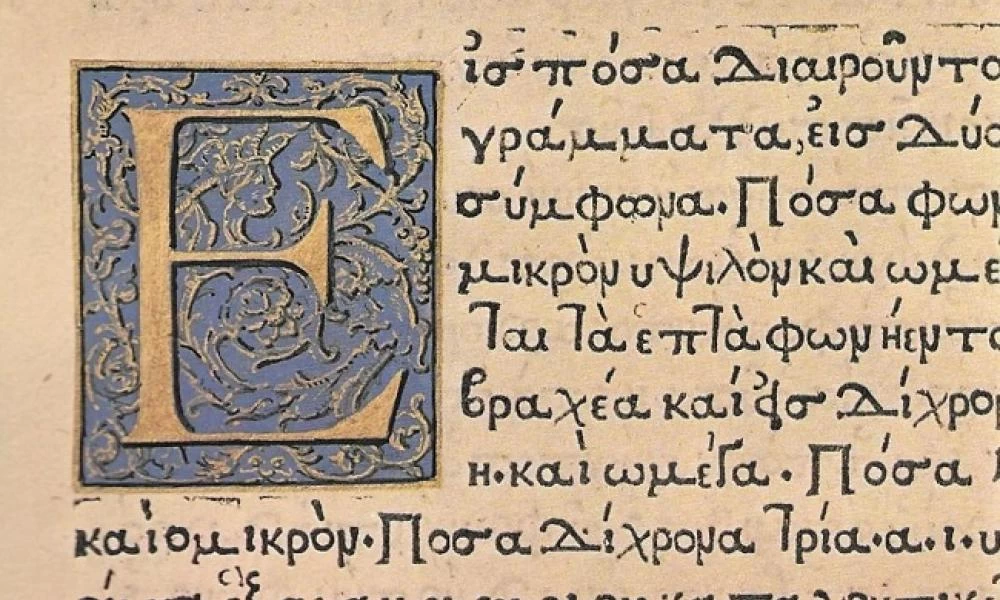 Εἰσ πόσα Διαιροῦντα
γράμματα, εἰσ Δύο
σύμφωνα. Πόσα φων
μικρὸν υψιλὸν καὶ ωμε
ται τὰ επτὰ φωνήεντα
βραχέα καὶ εἰσ Δίχρον
η. καὶ ωμέγα. Πόσα
καὶ ομικρὸν. Ποσα Δίχρονα τρία. α. ι. υ